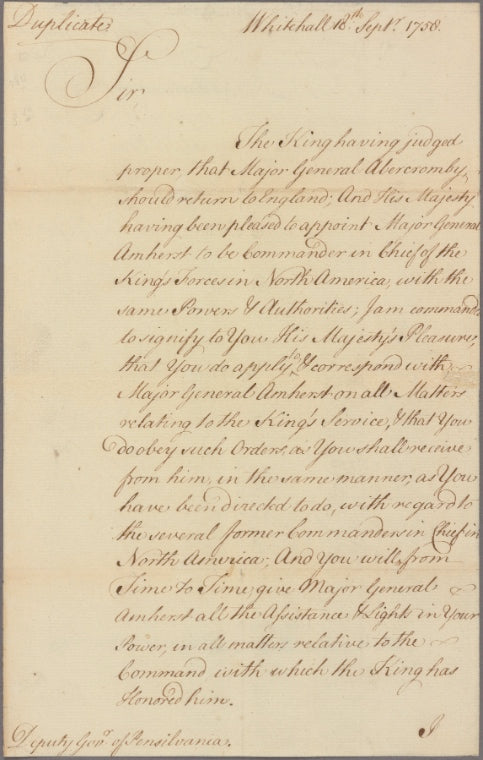 Duplicate
Whitehall 18th. Septr. 1758.
Sir,
The King having judged
proper, that Major General Abercromby,
should return to England; And His Majesty
having been pleased to appoint Major General
Amherst to be Commander in Chief of the
King's Forces in North America, with the
same Powers & Authorities; I am commanded
to signify to You His Majesty's Pleasure,
that You do apply to, & correspond with
Major General Amherst on all Matters
relating to the King's Service, & that You
do obey such Orders, as You shall receive
from him, in the same manner, as You
have been directed to do, with regard to
the several former Commanders in Chief in
North America; And You will, from
Time to Time, give Major General
Amherst all the Assistance & Lights in Your
Power, in all matters relative to the
Command with which the King has
Honored him.
I
Deputy Govr. of Pensilvania.